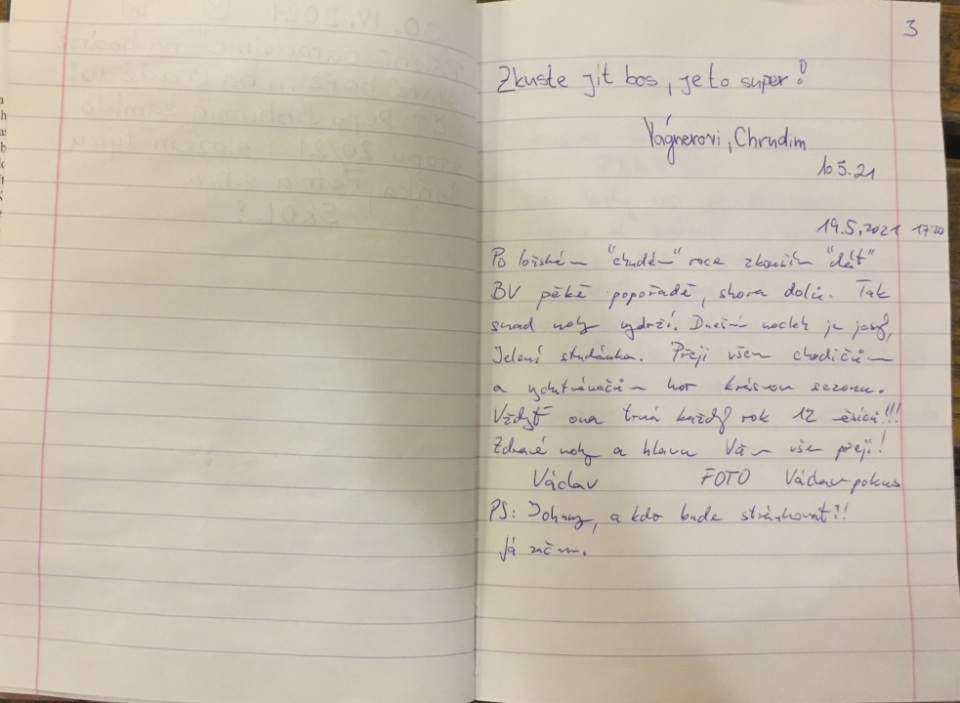 3
Zkuste jít bos, je to super!
Vágnerovi, Chrudim
10.5.21
19.5.2021 17:20
Po loňském "chudém" roce zkouším "dát"
BV pěkě popořadě, shora dolů. Tak
snad nohy vydrží. Dnešní nocleh je jasný,
Jelení studánka. Přeji všem chodičům
a vychutnávačům hor krásnou sezonu.
Vždyť ona trvá každý rok 12 měsíců!!!
Zdravé nohy a hlavu Vám všem přeji!
Václav FOTO Václavpokus
PS: Johny, a kdo bude stránkovat?!
Já začnu.